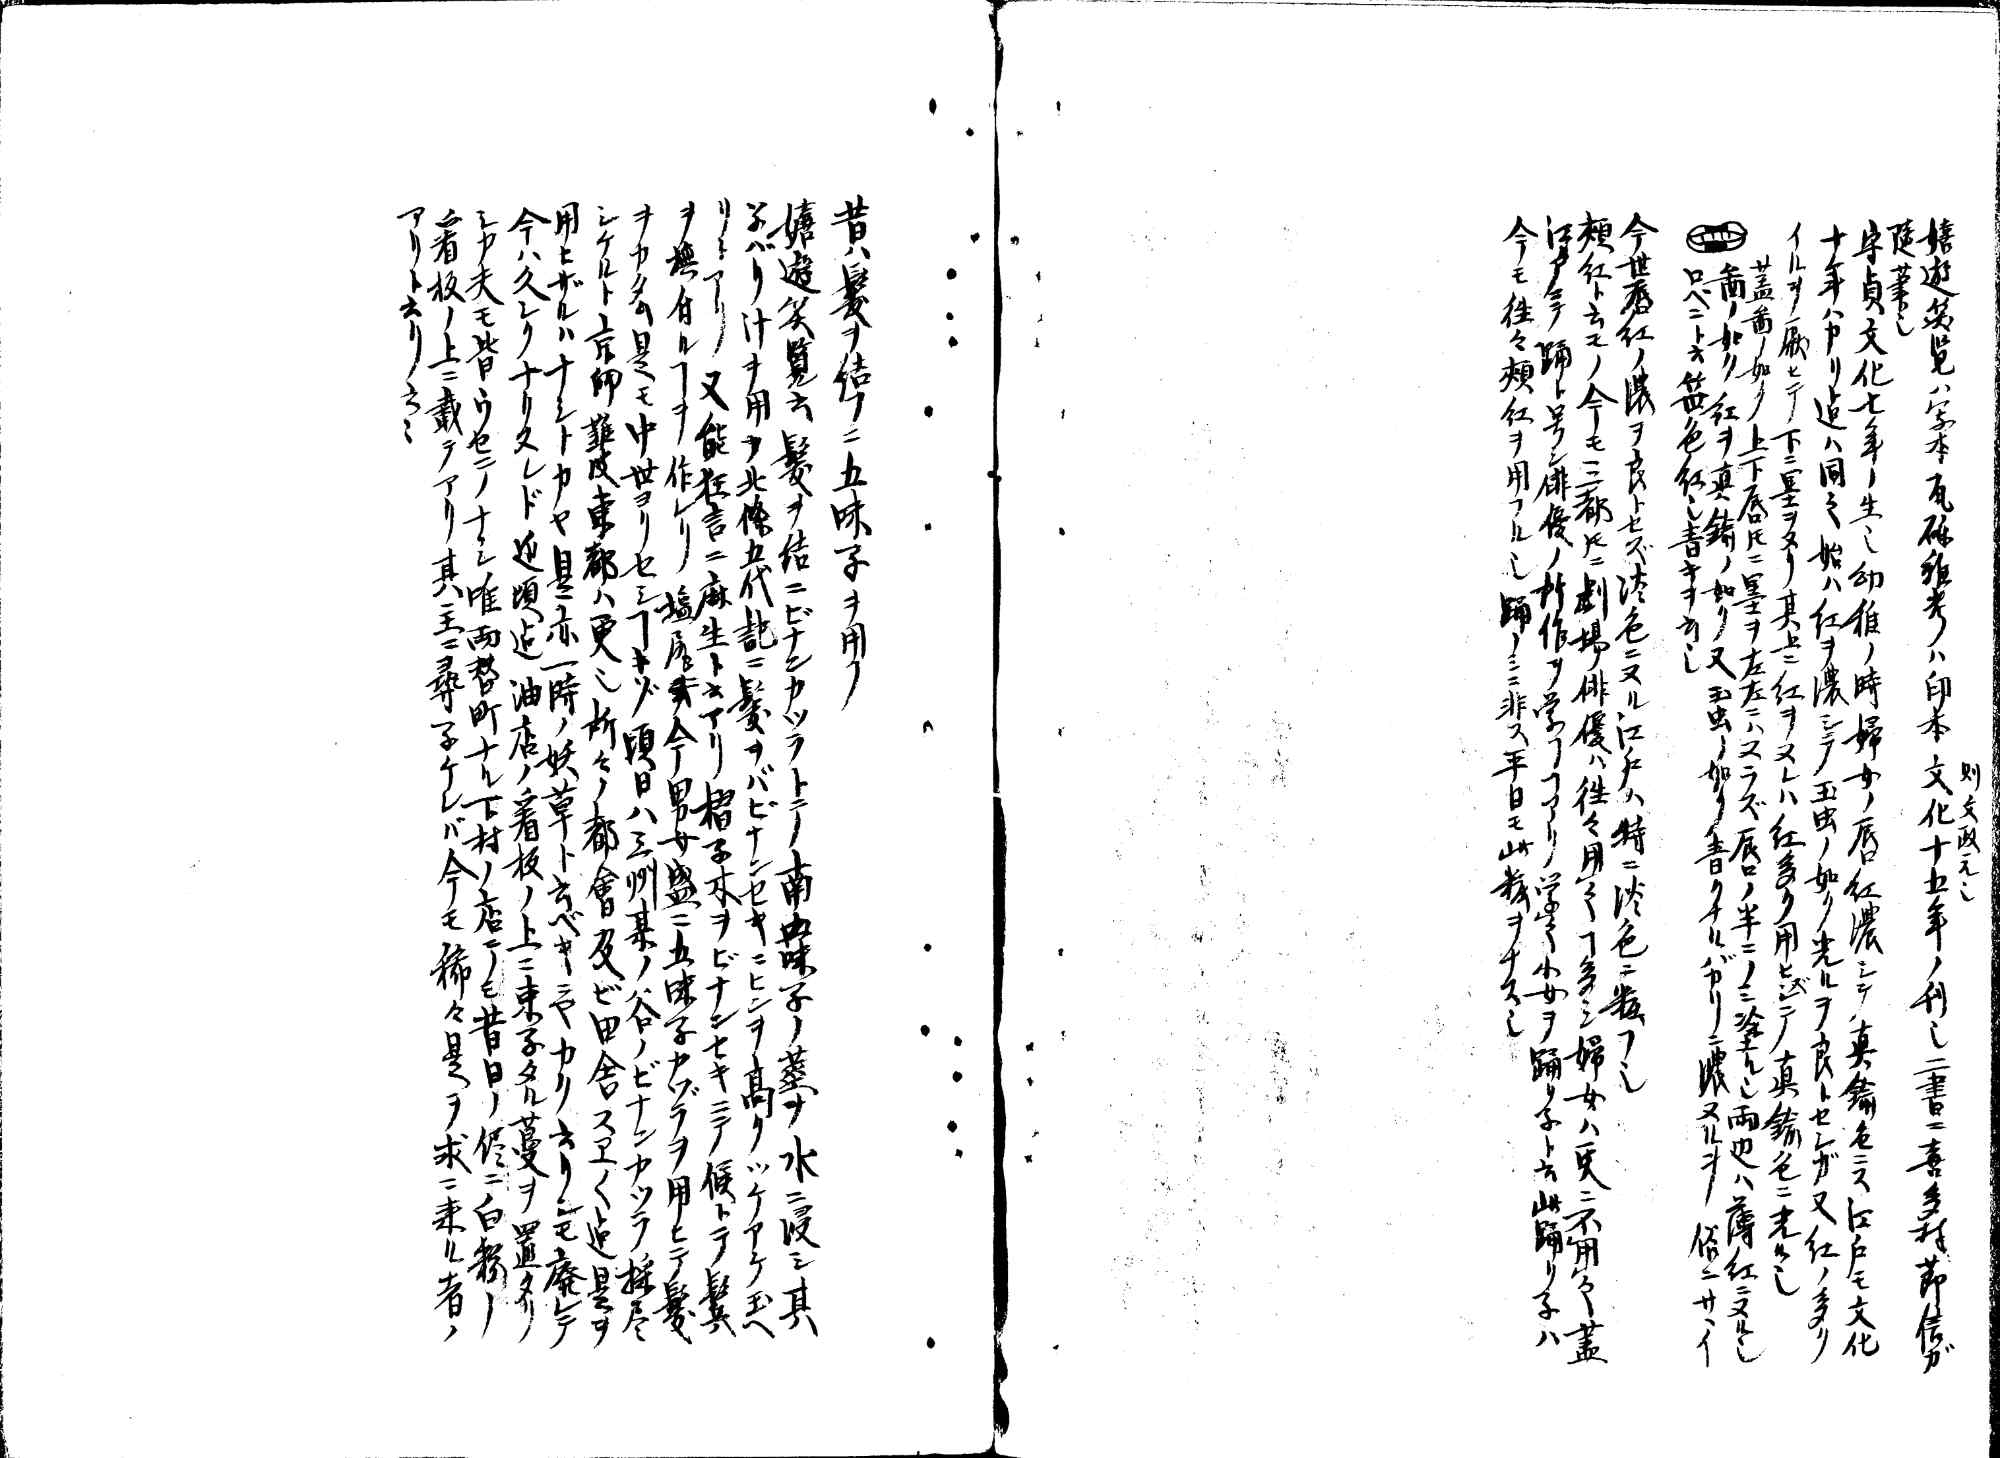 嬉遊笑覧ハ写本瓦礫雑考ハ印本文化十五年ノ刊也二書ニ喜多村節信ガ
則文政元也
随筆也
守貞文化七年ノ生也幼稚ノ時婦女ノ唇口紅濃シテ真鍮色ニス江戸モ文化
十年ハカリ迠ハ同之始ハ紅ヲ濃シテ玉虫ノ如ク光ルヲ良トセシガ又紅ノ多ク
イルヲ厭ヒテ下ニ墨ヲヌリ其上ニ紅ヲヌレハ紅多ク用ヒズシテ真鍮色ニ光ル也
蓋図ノ如ク上下唇トモニ墨ヲ左右ニハヌラズ唇ノ半ニノミ塗ル也両也ハ薄紅ニヌル也
図ノ如ク紅ヲ真鍮ノ如ク又玉虫ノ如ク青クナルバカリニ濃ヌルヲ俗ニサヽイ
ロベニト云笹色紅也青キヲ云也
今世唇紅ノ濃ヲ良トセズ淡色ニヌル江戸ハ特ニ淡色ニ粧フ也
頬紅ト云モノ今モ三都トモニ劇場俳優ハ往々用之コ多シ婦女ハ更ニ不用之蓋
江戸ニテ踊ト号シ俳優ノ所作ヲ学フコアリ学之少女ヲ踊り子ト云此踊り子ハ
今モ往々頬紅ヲ用フル也踊ノミニ非ス平日モ此粧ヲナス也
昔ハ髪ヲ結フニ五味子ヲ用フ
嬉遊笑覧云髪ヲ結ニビナンカツラトテ南五味子ノ茎ヲ水ニ浸シ其
子バリ汁ヲ用ヲ北條五代記ニ髪ヲバビナンセキニヒンヲ高クツケアケ玉ヘ
リトアリ又能狂言ニ麻生ト云アリ楷子木ヲビナンセキニテ候トテ鬢
ヲ撫付ルコヲ作レリ塩尻ニ今男女盛ニ五味子カヅラヲ用ヒテ髪
ヲカタム是モ中世ヨリセシコトゾ頃日ハ三州某ノ谷ノビナンカツラ採尽
シケルト京師難波東都ハ更也所々ノ都會及ビ田舎スエ〱迠是ヲ
用ヒザルハナシトカヤ是亦一時ノ妖草ト云ベキニヤカク云リシモ廃レテ
今ハ久シクナリヌレド近頃迠油店ノ看板ノ上ニ束子タル蔓ヲ置タリ
シカ夫モ皆ウセテナシ唯両替町ナル下村ノ店ニテモ昔日ノ侭ニ白粉ノ
看板ノ上ニ載テアリ其主ニ尋子ケレバ今モ稀々是ヲ求ニ来ル者ノ
アリト云リ云々